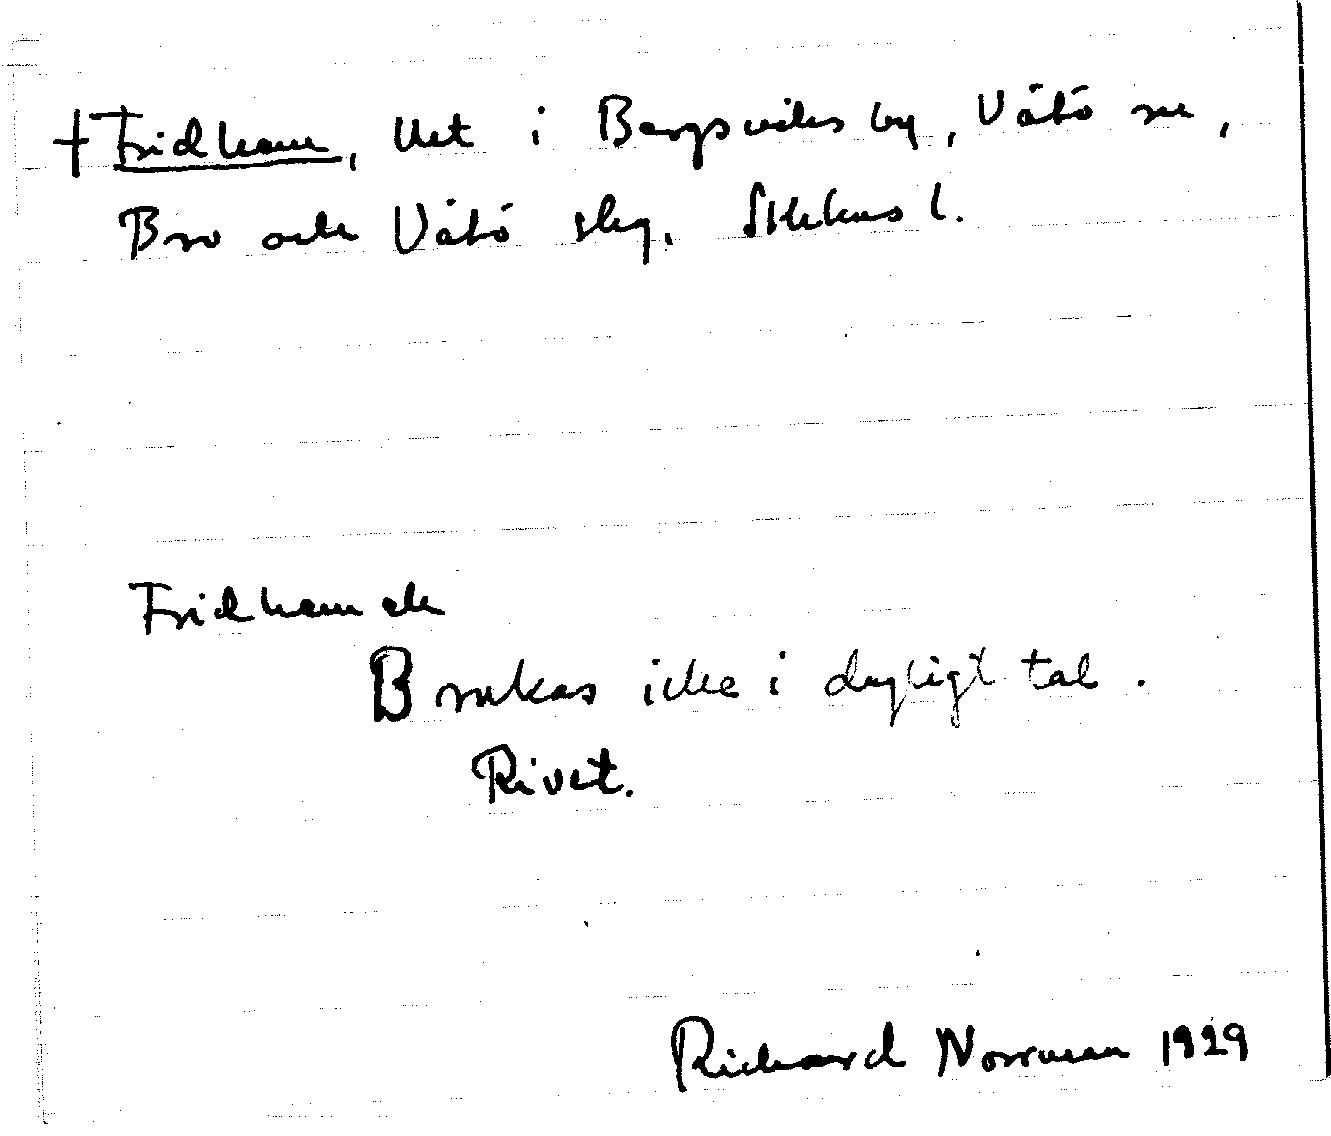 † Fridhem, lht i Bergsvikes by, Vätö sn,
Bro och Vätö slg. Sthlms l.
Fridhem ek
Brukas icke i dagligt tal.
Rivet.
Richard Norrman 1929